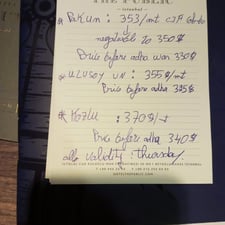 THE PUBLIC
istanbul
* Bakun : 353/mt CIF
negotiated to 350$
Price before adha was 330$
* ULUSOY UN : 355$/mt
Price before adha 345$
* Hozlu : 370$/
Price before adha 340$
all validity : Thursday
HOTELTHEPUBLIC.COM